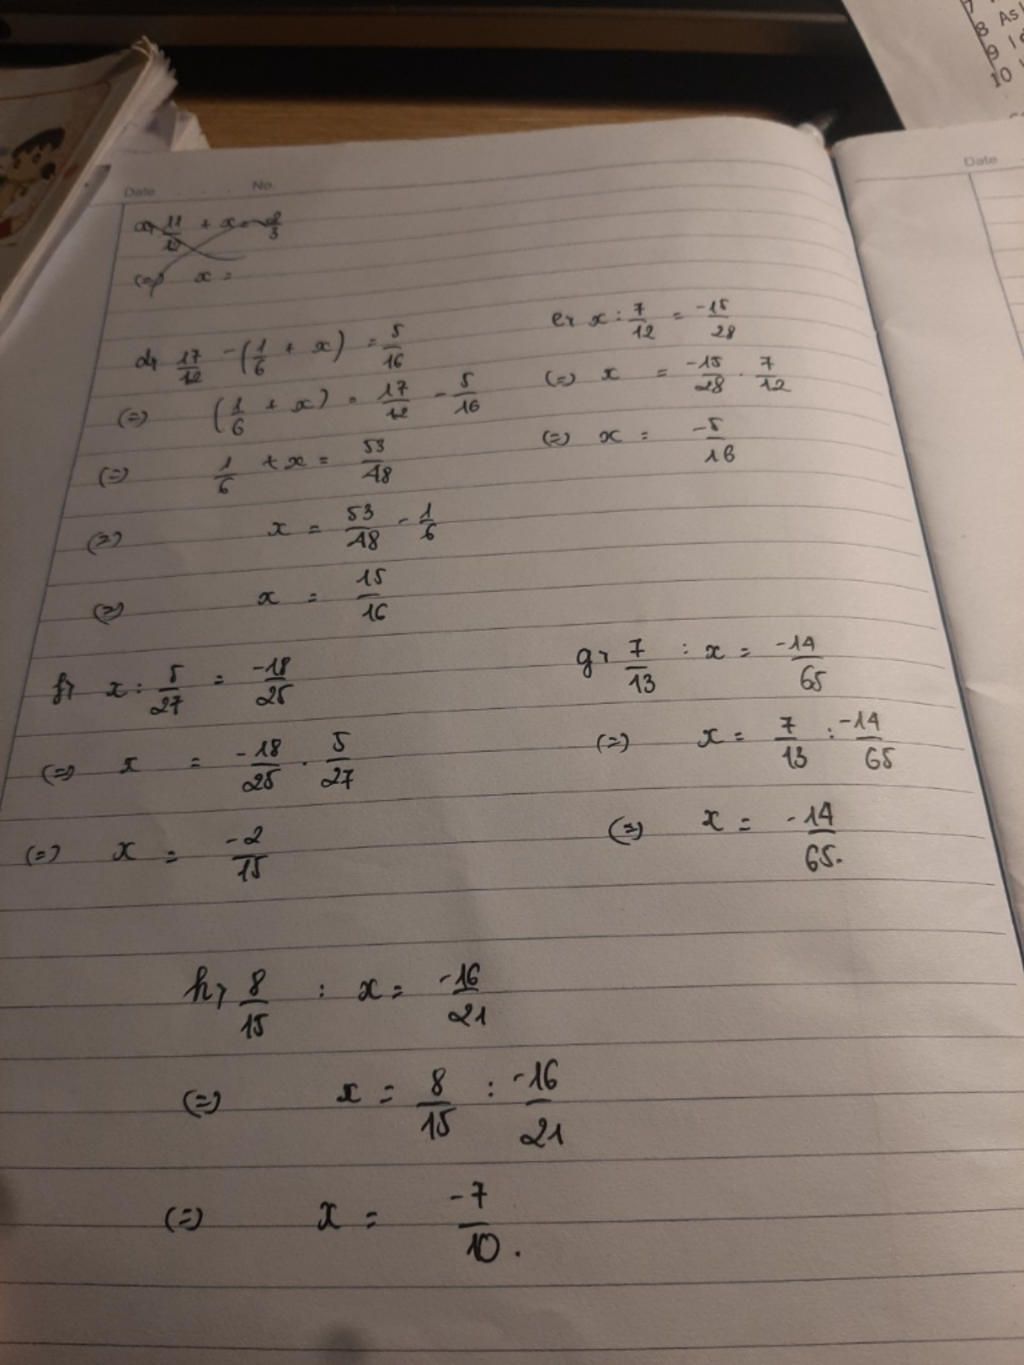 8 As
9 I
10
Date No.
Date
(=) x =
d, 17/12 - (1/6 + x) = 5/16
(=) (1/6 + x) = 17/12 - 5/16
(=) 1/6 + x = 53/48
(=) x = 53/48 - 1/6
(=) x = 15/16
e, x : 7/12 = -15/28
(=) x = -15/28 . 7/12
(=) x = -5/16
f, x : 5/27 = -18/25
(=) x = -18/25 . 5/27
(=) x = -2/15
g, 7/13 : x = -14/65
(=) x = 7/13 : -14/65
(=) x = -14/65.
h, 8/15 : x = -16/21
(=) x = 8/15 : -16/21
(=) x = -7/10.